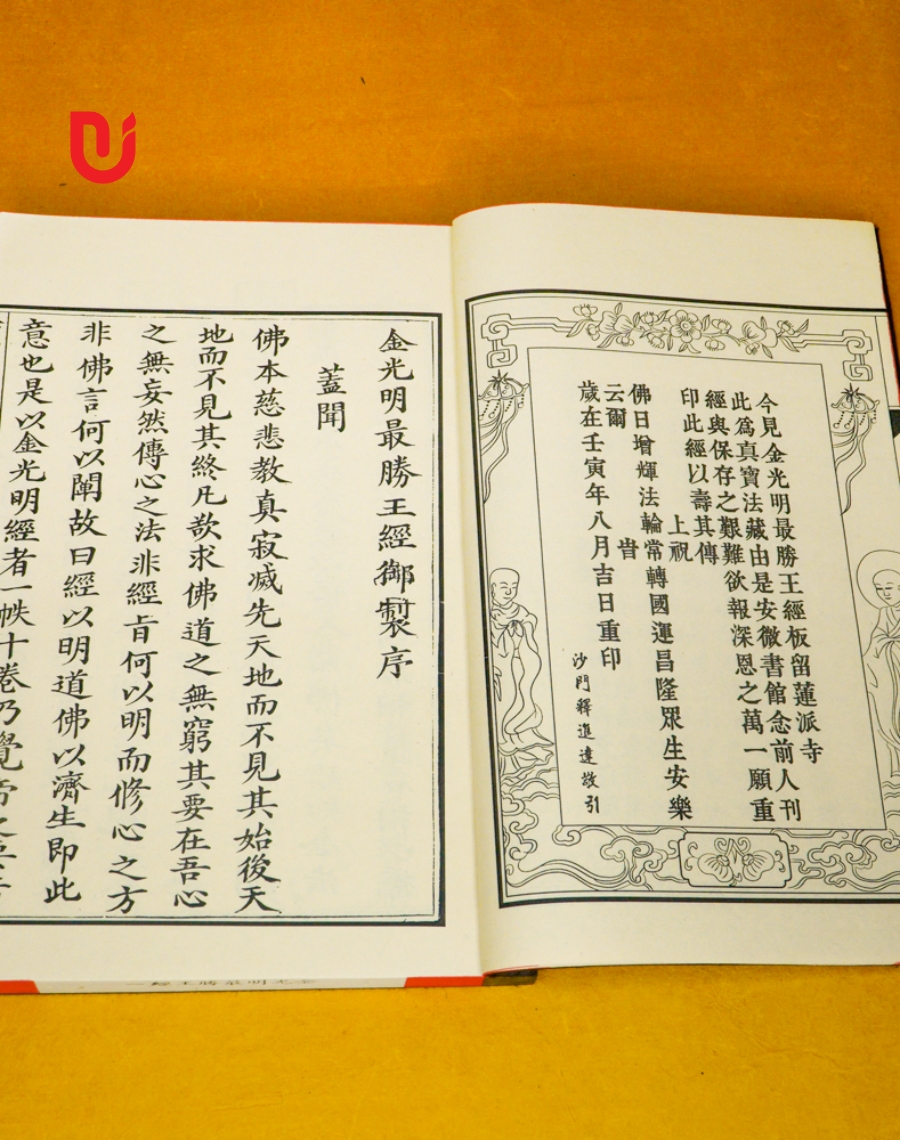 今見金光明最勝王經板留蓮派寺
此爲真寶法藏由是安微書館念前人刊
經與保存之艱難欲報深恩之萬一願重
印此經以壽其傳
上祝
佛日增輝法輪常轉國運昌隆眾生安樂
云爾 旹
歲在壬寅年八月吉日重印
沙門釋進達敬引
金光明最勝王經御製序
蓋聞
佛本慈悲教真寂滅先天地而不見其始後天
地而不見其終凡欲求佛道之無窮其要在吾心
之無妄然傳心之法非經旨何以明而脩心之方
非佛言何以闡故曰經以明道佛以濟生即此
意也是以金光明經者一帙十卷乃覺帝